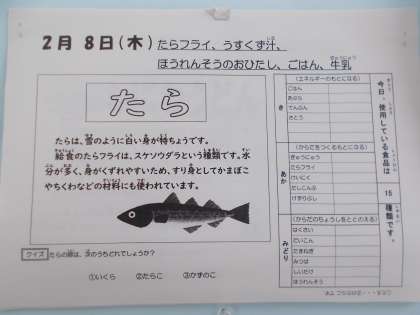 2月 8日(木) たらフライ、うすくず汁、
ほうれんそうのおひたし、ごはん、牛乳
ぎゅうにゅう
たら
たらは、雪のように白い身が特ちょうです。
給食のたらフライは、スケソウダラという種類です。水
分が多く、身がくずれやすいため、すり身としてかまぼこ
やちくわなどの材料にも使われています。
クイズ たらの卵は、次のうちどれでしょうか?
①いくら ②たらこ ③かずのこ
今日、使用している食品は
15
種類です。
き
(エネルギーのもとになる)
ごはん
あぶら
でんぷん
さとう
あか
(からだをつくるもとになる)
ぎゅうにゅう
たらフライ
けいにく
だしこんぶ
けずりぶし
みどり
(からだのちょうしをととのえる)
はくさい
だいこん
たまねぎ
みつば
しいたけ
ほうれんそう